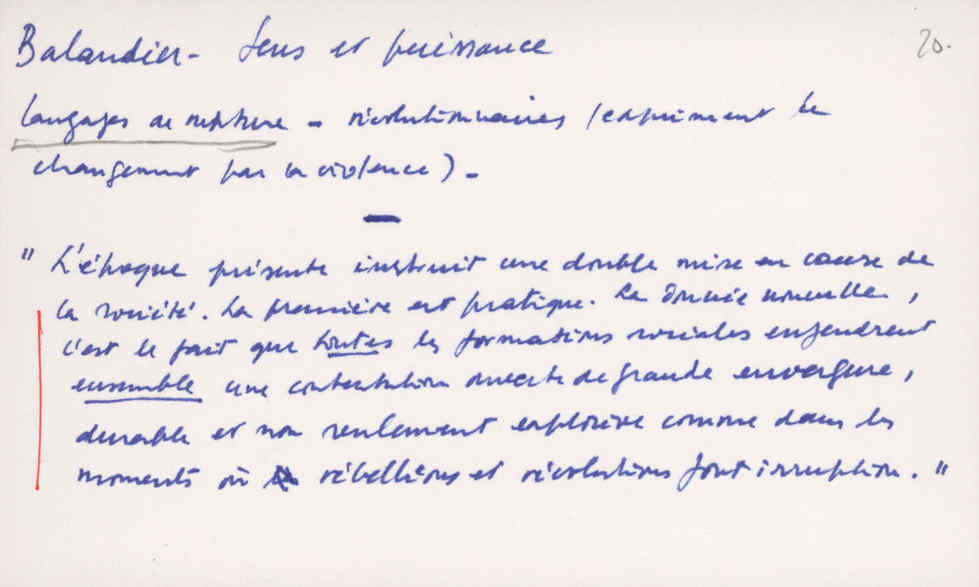 Balandier - Sens et puissance
20.
langages de rupture - révolutionnaires (expriment le
changement par la violence) -
" L'époque présente instruit une double mise en cause de
la société. La première est pratique. La donnée nouvelle,
c'est le fait que toutes les formations sociales engendrent
ensemble une contestation ouverte de grande envergure,
durable et non seulement explosive comme dans les
moments où rébellions et révolutions font irruption. "